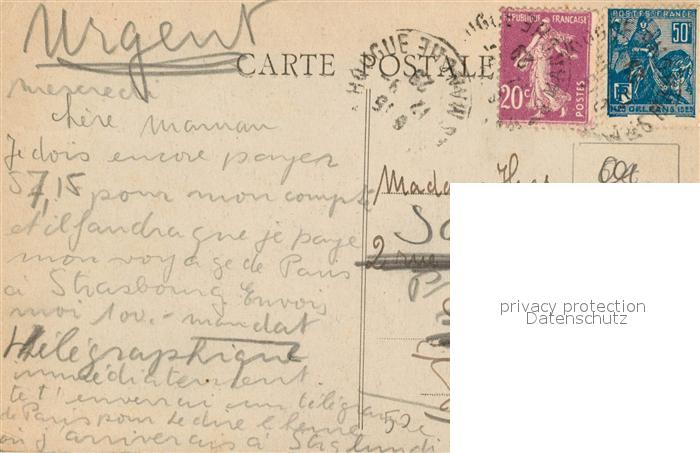 Urgent
CARTE POSTALE
HOUGUE
RÉPUBLIQUE FRANÇAISE
20c
POSTES
POSTES FRANCE
50c
RF
1429 ORLEANS 1929
mercredi
chère maman
Je dois encore payer
57,15 pour mon compte
et il faudra que je paye
mon voyage de Paris
à Strasbourg. Envois
moi 100.- mandat
télégraphique
immédiatement.
Je t'enverrai un télégramme
de Paris pour te dire l'heure
où j'arriverais à Stbg lundi
Madame
2 rue
privacy protection
Datenschutz